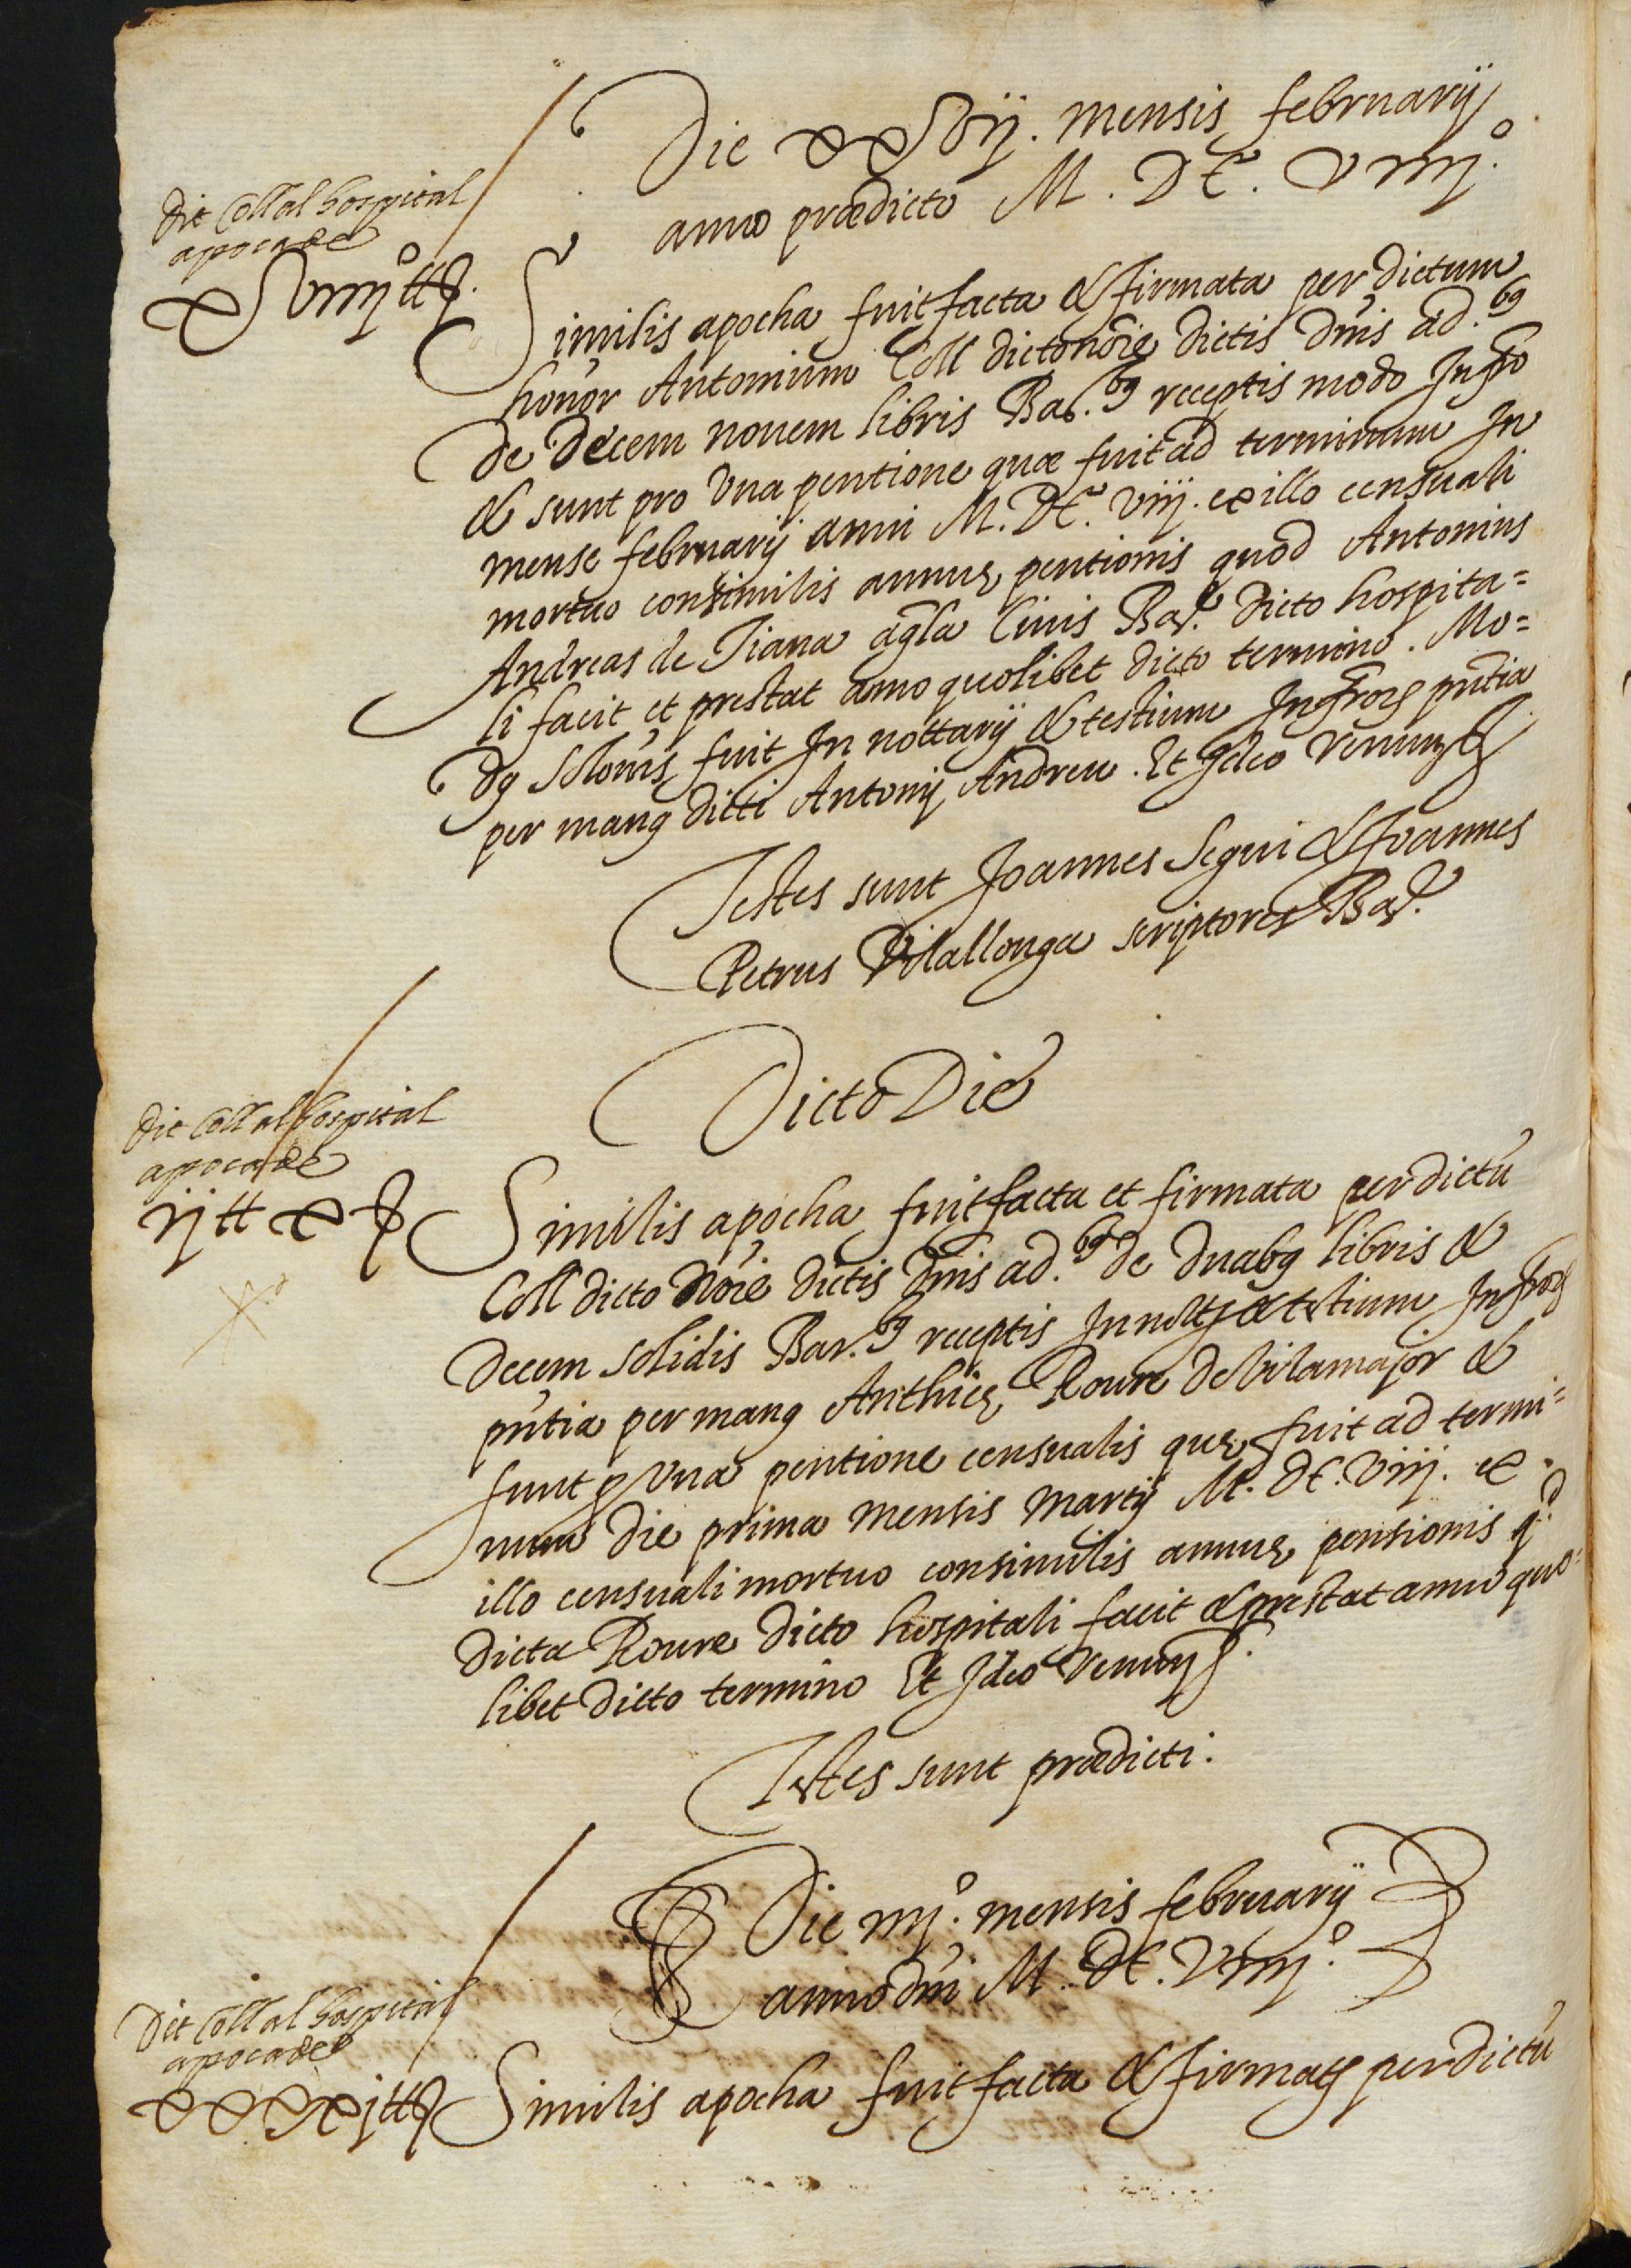 Die xxvij. mensis february
anno prædicto M. DC. viiij.º
Dit Coll al hospital
apoca de
xviiijº ℔ ß.
Similis apocha fuit facta & firmata per dictum
honor Antonium Coll dicto nõie dictis dñis ad.bꝯ
de decem novem libris Bar.bꝯ receptis modo Infrõ
& sunt pro una pentione quæ fuit ad terminum In
mense february anni M. DC. viiij. ex illo censuali
mortuo consimilis annuę pentionis quod Antonius
Andreas de Tiana agla Civis Bar. dicto hospita=
li facit et prestat anno quolibet dicto termino. Mo=
dꝯ Solonis fuit In nottarij & testium Infrorꝝ pñtia
per manꝯ dicti Antonij Andreu. Et Ideo renun
Testes sunt Joannes Segui & Joannes
Petrus Vilallonga scriptores Bar.
Dicto Die
Dit Coll al hospital
apoca de
ij ℔ x ß
Similis apocha fuit facta et firmata per dictũ
Coll dicto Nõie dictis dñis ad.bꝯ de duabꝯ libris &
decem solidis Bar.bꝯ receptis In & testium Infrorꝝ
pñtia per manꝯ Anthicę Roure de Vilamajor &
sunt ꝑ una pentione censualis quę fuit ad termi=
num die prima mensis Martij M. DC. viiij. ex
illo censuali mortuo consimilis annuę pensionis q.d
dicta Roure dicto hospitali facit & prestat anno quo=
libet dicto termino Et Ideo renun
Testes sunt prædicti.
Die iiij.º mensis february
anno dñi M. DC. viiij.º
Dit Coll al hospital
apoca de
Similis apocha fuit facta & firmata per dictũ